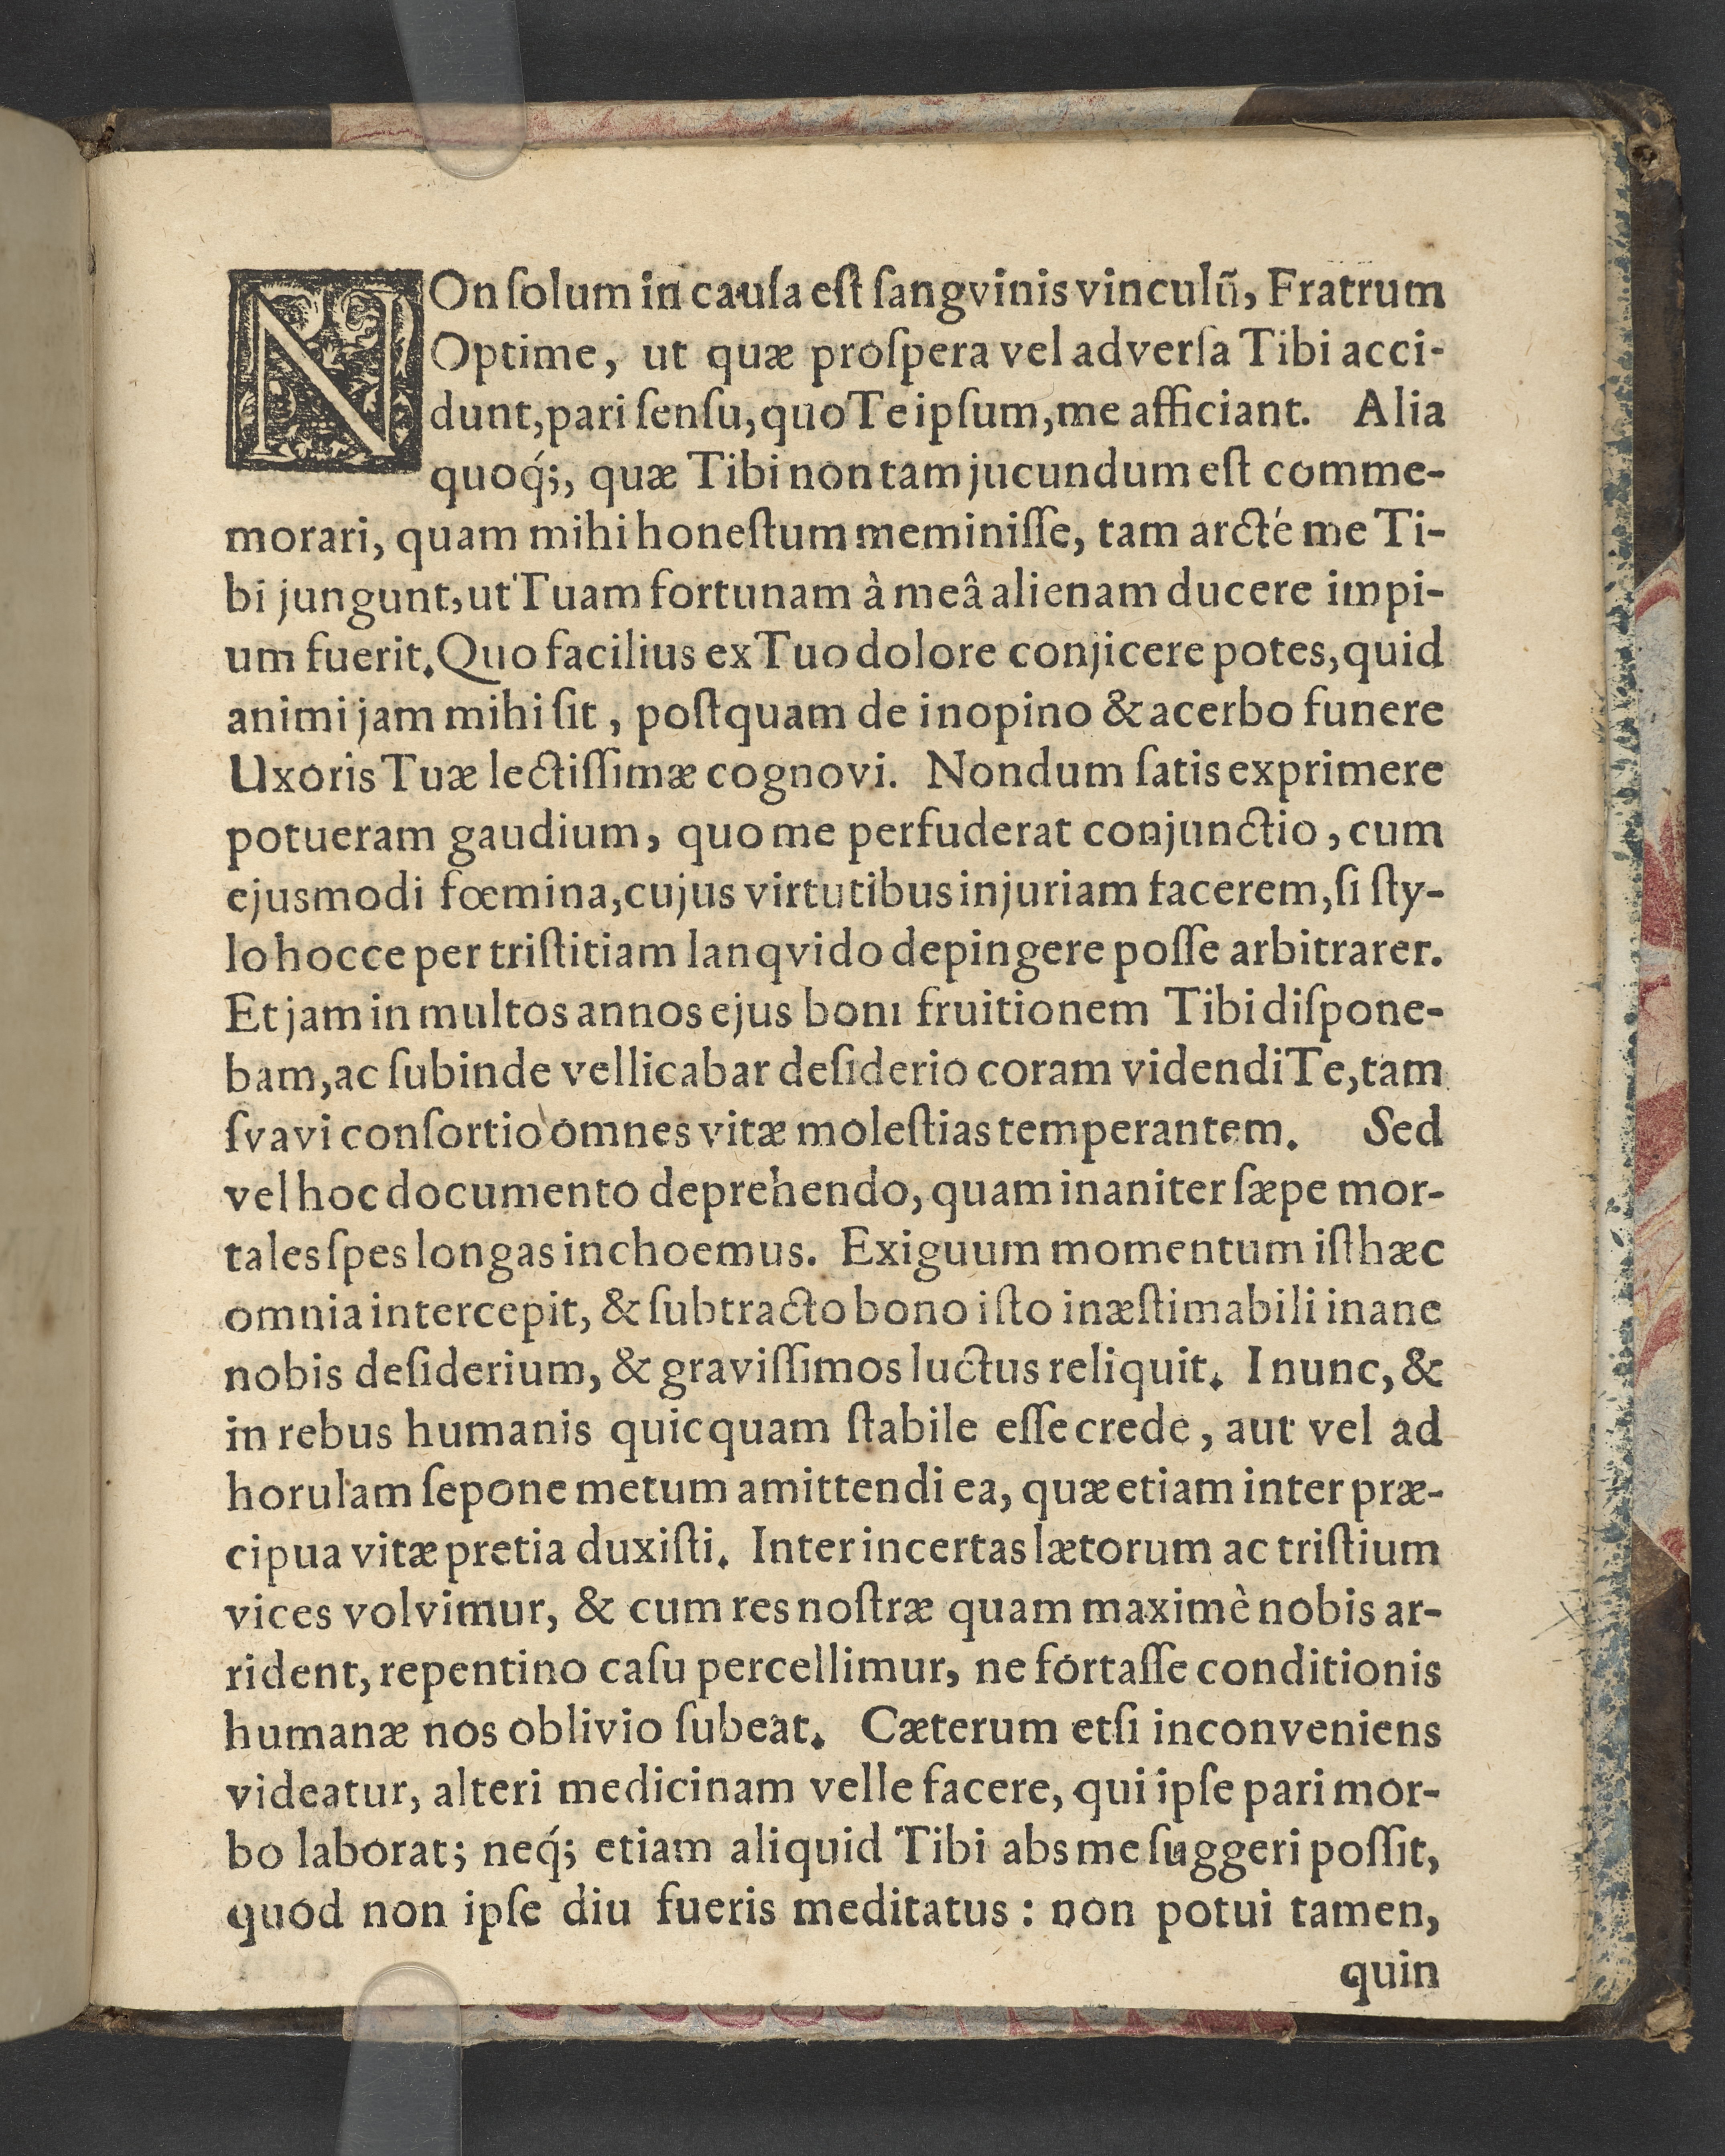 NOn ſolum in cauſa eſt ſangvinis vinculũ, Fratrum
Optime, ut quæ proſpera vel adverſa Tibi acci-
dunt, pari ſenſu, quo Te ipſum, me afficiant. Alia
quoq́;, quæ Tibi non tam jucundum eſt comme-
morari, quam mihi honeſtum meminiſſe, tam arcté me Ti-
bi jungunt, ut Tuam fortunam à meâ alienam ducere impi-
um fuerit. Quo facilius ex Tuo dolore conjicere potes, quid
animi jam mihi ſit, poſtquam de inopino & acerbo funere
Uxoris Tuæ lectiſſimæ cognovi. Nondum ſatis exprimere
potueram gaudium, quo me perfuderat conjunctio, cum
ejusmodi fœmina, cujus virtutibus injuriam facerem, ſi ſty-
lo hocce per triſtitiam lanqvido depingere poſſe arbitrarer.
Et jam in multos annos ejus boni fruitionem Tibi diſpone-
bam, ac ſubinde vellicabar deſiderio coram videndi Te, tam
ſvavi conſortio omnes vitæ moleſtias temperantem. Sed
vel hoc documento deprehendo, quam inaniter ſæpe mor-
tales ſpes longas inchoemus. Exiguum momentum iſthæc
omnia intercepit, & ſubtracto bono iſto inæſtimabili inane
nobis deſiderium, & graviſſimos luctus reliquit. I nunc, &
in rebus humanis quicquam ſtabile eſſe crede, aut vel ad
horulam ſepone metum amittendi ea, quæ etiam inter præ-
cipua vitæ pretia duxiſti. Inter incertas lætorum ac triſtium
vices volvimur, & cum res noſtræ quam maximè nobis ar-
rident, repentino caſu percellimur, ne fortaſſe conditionis
humanæ nos oblivio ſubeat. Cæterum etſi inconveniens
videatur, alteri medicinam velle facere, qui ipſe pari mor-
bo laborat; neq́; etiam aliquid Tibi abs me ſuggeri poſſit,
quod non ipſe diu fueris meditatus: non potui tamen,
quin